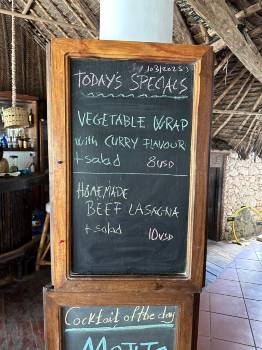 /03/2025
TODAY'S SPECIALS
VEGETABLE WRAP
with CURRY FLAVOUR
+ salad 8USD
HOMEMADE
BEEF LASAGNA
+ salad 10USD
Cocktail of the day
MOJITO